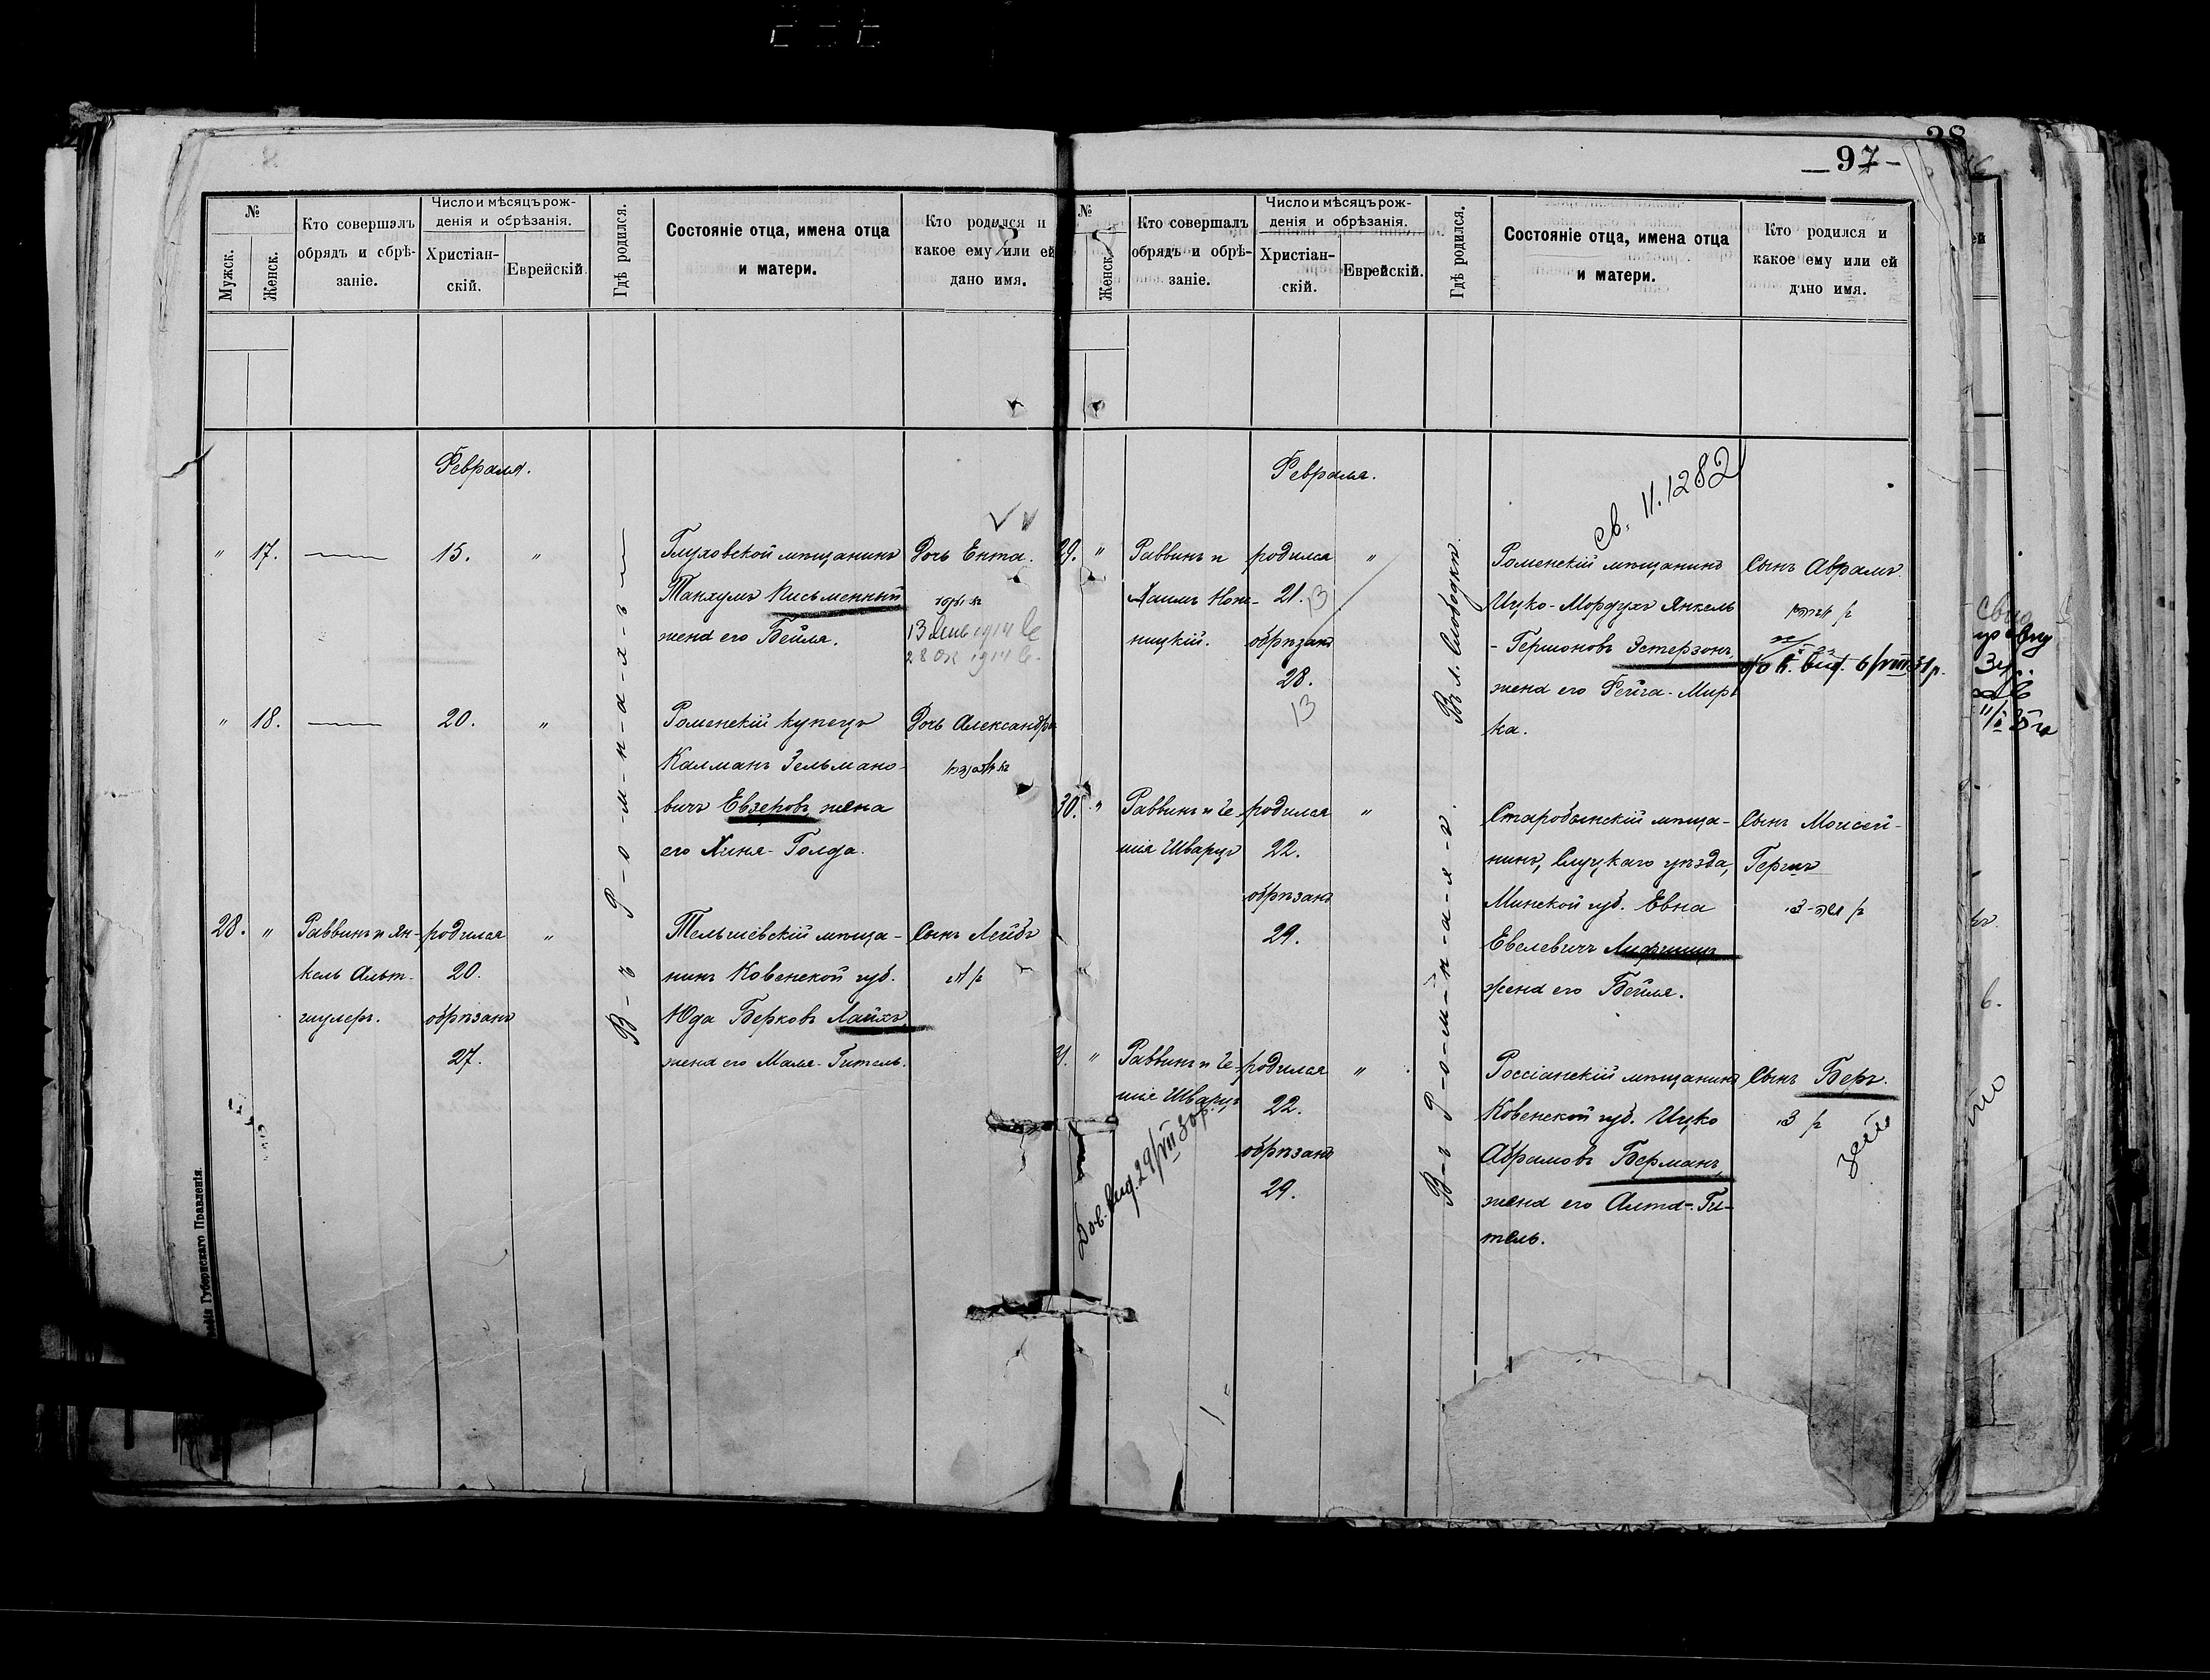 28
97-
№
Мужск.
Женск.
Кто совершалъ
обрядъ и обрѣ-
заніе.
Число и мѣсяцъ рож-
денія и обрѣзанія.
Христіан-
скій.
Еврейскій.
Гдѣ родился.
Состояніе отца, имена отца
и матери.
Кто родился и
какое ему или ей
дано имя.
Февраля.
" 17. — 15. "
Глуховской мѣщанинъ
Танхумъ Письменный
жена его Бейля.
Дочь Ента.
" 18. — 20. "
Роменскій купецъ
Калманъ Зельмано-
вичъ Евзеровъ, жена
его Хиня-Голда.
Дочь Александра
28. "
Раввинъ и Ян-
кель Альт-
шулеръ.
родился
20.
обрѣзанъ
27.
"
Въ Ромнахъ
Тельшевскій мѣща-
нинъ Ковенской губ.
Юда Берковъ Лайхъ,
жена его Маля-Гитель.
Сынъ Лейбъ
Губернскаго Правленія.
№
Женск.
Кто совершалъ
обрядъ и обрѣ-
заніе.
Число и мѣсяцъ рож-
денія и обрѣзанія.
Христіан-
скій.
Еврейскій.
Гдѣ родился.
Состояніе отца, имена отца
и матери.
Кто родился и
какое ему или ей
дано имя.
Февраля.
св. 11.1282
29. "
Раввинъ и
Хаимъ Нож-
ницкій.
родился
21.
обрѣзанъ
28.
13
13
"
Роменскій мѣщанинъ
Ицко-Мордухъ Янкель
-Гершоновъ Эстерзонъ,
жена его Фейга-Мир-
ка.
Сынъ Абрамъ.
30. "
Раввинъ и Ге-
шія Шварцъ
родился
22.
обрѣзанъ
29.
"
Старобинскій мѣща-
нинъ, Слуцкаго уѣзда,
Минской губ. Евна
Евелевичъ Лифшицъ
жена его Бейля.
Сынъ Моисей-
Гершъ
31. "
Раввинъ и Ге-
шія Шварцъ
родился
22.
обрѣзанъ
29.
"
Въ Ромнахъ.
Россіанскій мѣщанинъ
Ковенской губ. Ицко
Абрамовъ Берманъ,
жена его Алта-Ги-
тель.
Сынъ Беръ.
Дов. вид. 29/VII 30р.